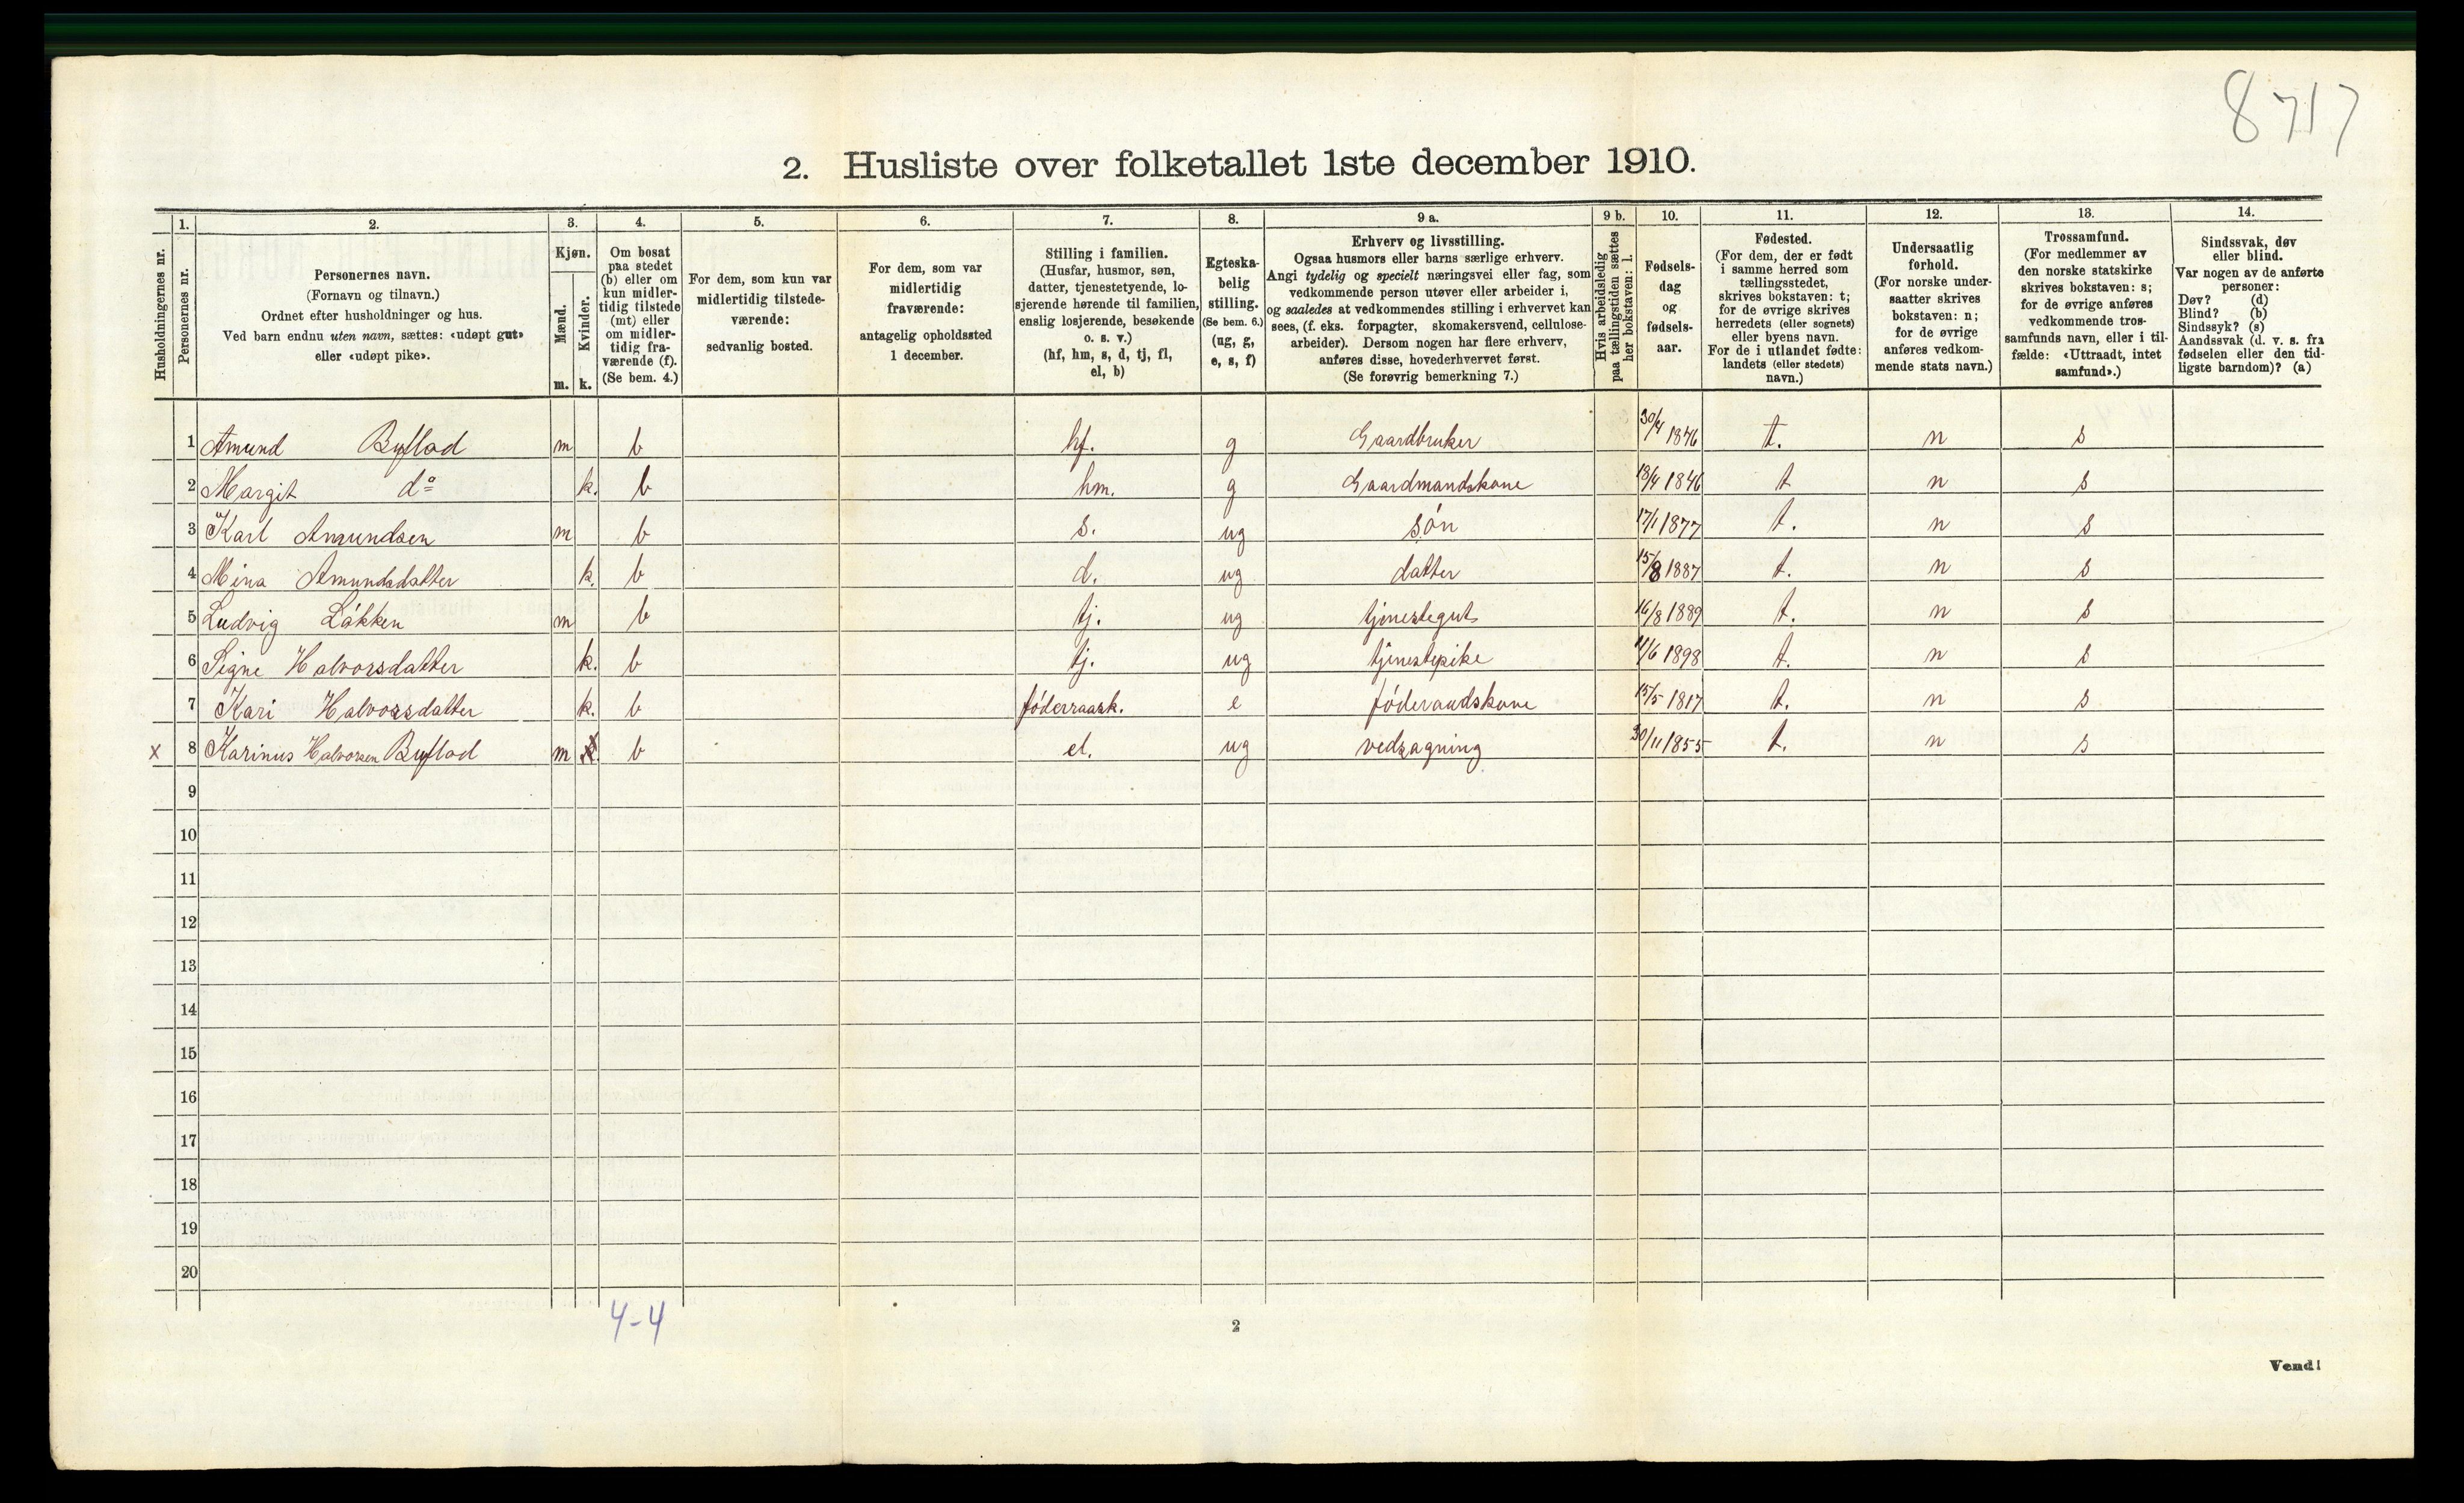 8717
2. Husliste over folketallet 1ste december 1910.
1. 2. 3. 4. 5. 6. 7. 8. 9 a. 9 b. 10. 11. 12. 13. 14.
Husholdningernes nr.
Personernes nr.
Personernes navn.
(Fornavn og tilnavn.)
Ordnet efter husholdninger og hus.
Ved barn endnu uten navn, sættes: «udøpt gut»
eller «udøpt pike».
Kjøn.
Mænd.
Kvinder.
m. k.
Om bosat
paa stedet
(b) eller om
kun midler-
tidig tilstede
(mt) eller
om midler-
tidig fra-
værende (f).
(Se bem. 4.)
For dem, som kun var
midlertidig tilstede-
værende:
sedvanlig bosted.
For dem, som var
midlertidig
fraværende:
antagelig opholdssted
1 december.
Stilling i familien.
(Husfar, husmor, søn,
datter, tjenestetyende, lo-
sjerende hørende til familien,
enslig losjerende, besøkende
o. s. v.)
(hf, hm, s, d, tj, fl,
el, b)
Egteska-
belig
stilling.
(Se bem. 6.)
(ug, g,
e, s, f)
Erhverv og livsstilling.
Ogsaa husmors eller barns særlige erhverv.
Angi tydelig og specielt næringsvei eller fag, som
vedkommende person utøver eller arbeider i,
og saaledes at vedkommendes stilling i erhvervet kan
sees, (f. eks. forpagter, skomakersvend, cellulose-
arbeider). Dersom nogen har flere erhverv,
anføres disse, hovederhvervet først.
(Se forøvrig bemerkning 7.)
Hvis arbeidsledig
paa tællingstiden sættes
her bokstaven: l.
Fødsels-
dag
og
fødsels-
aar.
Fødested.
(For dem, der er født
i samme herred som
tællingsstedet,
skrives bokstaven: t;
for de øvrige skrives
herredets (eller sognets)
eller byens navn.
For de i utlandet fødte:
landets (eller stedets)
navn.)
Undersaatlig
forhold.
(For norske under-
saatter skrives
bokstaven: n;
for de øvrige
anføres vedkom-
mende stats navn.)
Trossamfund.
(For medlemmer av
den norske statskirke
skrives bokstaven: s;
for de øvrige anføres
vedkommende tros-
samfunds navn, eller i til-
fælde: «Uttraadt, intet
samfund».)
Sindssvak, døv
eller blind.
Var nogen av de anførte
personer:
Døv? (d)
Blind? (b)
Sindssyk? (s)
Aandssvak (d. v. s. fra
fødselen eller den tid-
ligste barndom)? (a)
1 Amund Byflad m b hf. g Gaardbruker 30/4 1846 t. n s
2 Margit do k. b hm. g Gaardmandskone 18/4 1846 t n s
3 Karl Amundsen m b s. ug søn 17/1 1877 t. n s
4 Mina Amundsdatter k. b d. ug datter 15/8 1887 t. n s
5 Ludvig Løkken m b tj. ug tjenestegut 16/8 1889 t. n s
6 Signe Halvorsdatter k. b tj. ug tjenestepike /6 1898 t. n s
7 Kari Halvorsdatter k. b føderraadsk. e føderaadskone 15/5 1817 t. n s
x 8 Karinus Halvorsen Byflad m b el. ug vedsagning 30/11 1855 t. n s
9
10
11
12
13
14
15
16
17
18
19
20
4-4
2
Vend!